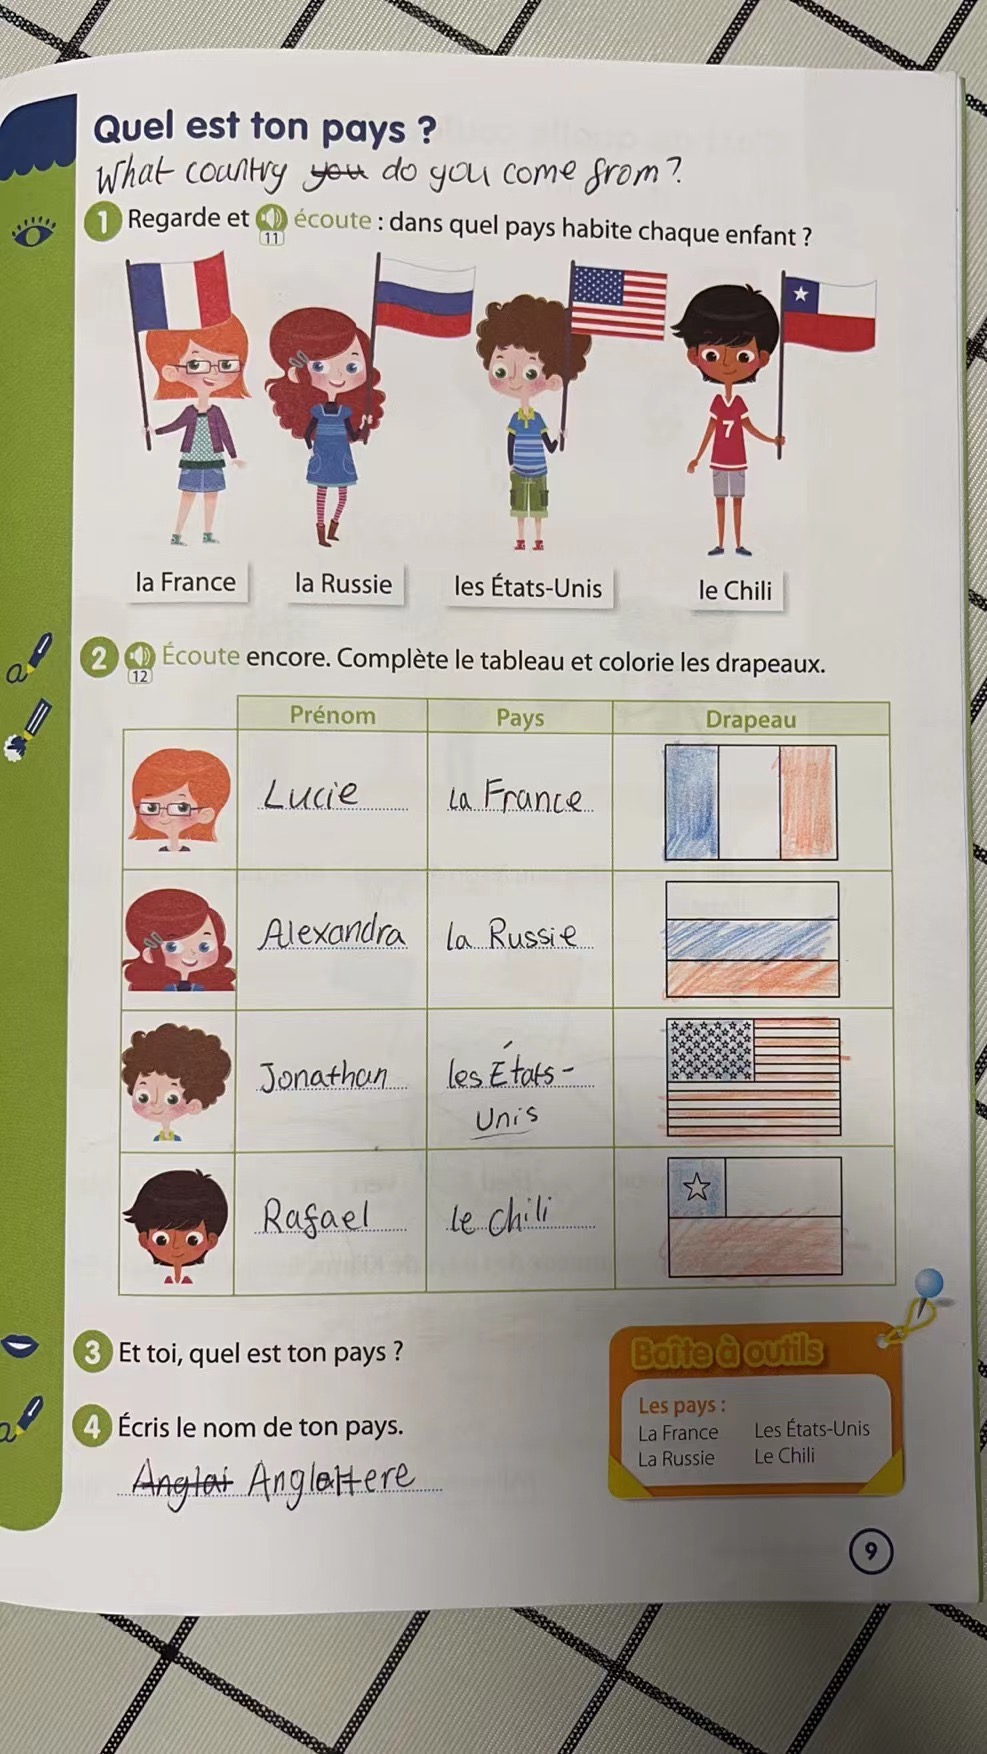 Quel est ton pays ?
What country you do you come from?
1 Regarde et écoute : dans quel pays habite chaque enfant ?
11
7
la France la Russie les États-Unis le Chili
2 Écoute encore. Complète le tableau et colorie les drapeaux.
12
Prénom Pays Drapeau
Lucie la France
Alexandra la Russie
Jonathan les États-
Unis
Rafael le Chili
3 Et toi, quel est ton pays ?
4 Écris le nom de ton pays.
Anglai Anglettere
Boîte à outils
Les pays :
La France Les États-Unis
La Russie Le Chili
9